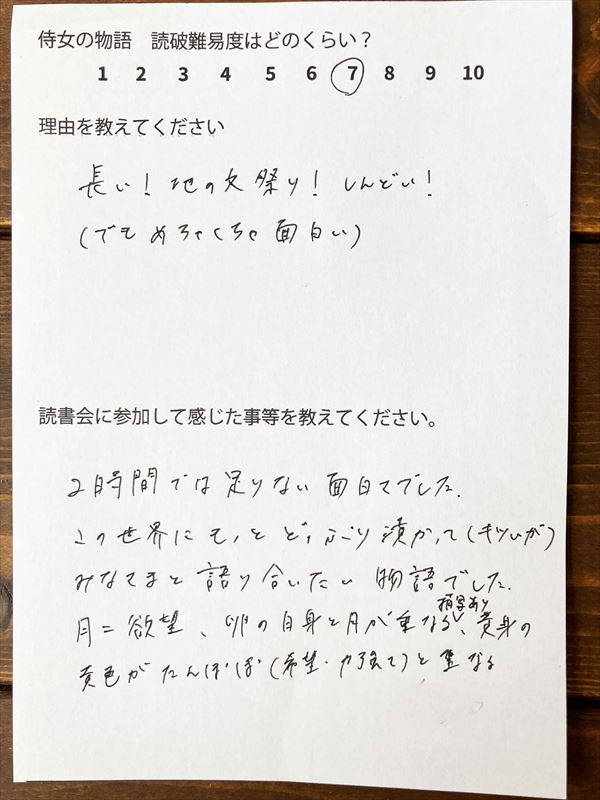 侍女の物語　読破難易度はどのくらい？
1 2 3 4 5 6 7 8 9 10
理由を教えてください
長い！地の文祭り！しんどい！
（でもめちゃくちゃ面白い）
読書会に参加して感じた事等を教えてください。
2時間では足りない面白さでした。
この世界にもっとどっぷり漬かって（キツいが）
みなさまと語り合いたい物語でした。
描写あり
月＝欲望、卵の白身と月が重なる、黄身の
黄色がたんぽぽ（希望・力強さ）と重なる